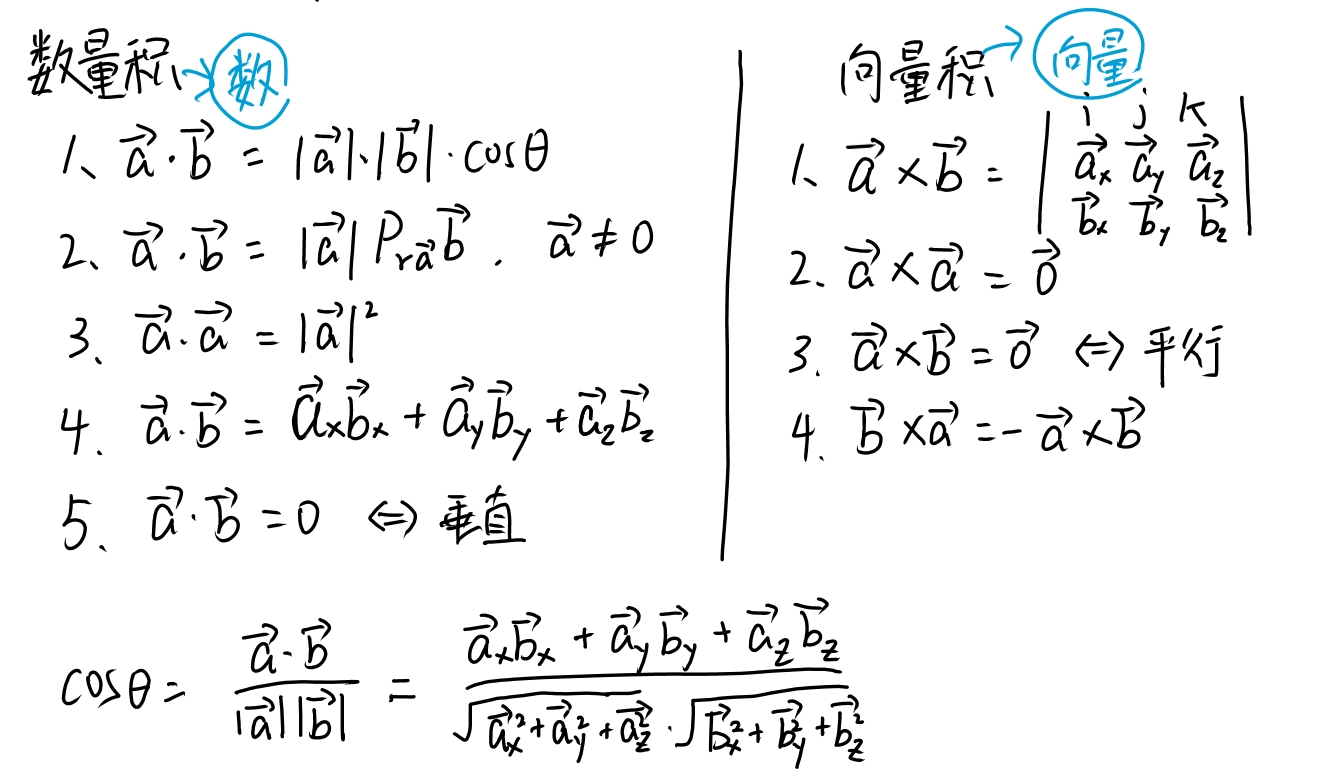 数量积→数
1、$\vec{a}\cdot\vec{b} = |\vec{a}|\cdot|\vec{b}|\cdot\cos\theta$
2、$\vec{a}\cdot\vec{b} = |\vec{a}| P_{r\vec{a}}\vec{b}. \vec{a} \neq 0$
3、$\vec{a}\cdot\vec{a} = |\vec{a}|^2$
4. $\vec{a}\cdot\vec{b} = \vec{a}_x\vec{b}_x + \vec{a}_y\vec{b}_y + \vec{a}_z\vec{b}_z$
5、$\vec{a}\cdot\vec{b} = 0 \Leftrightarrow$ 垂直
向量积→向量
1、$\vec{a}\times\vec{b} = \begin{vmatrix} i & j & k \\ \vec{a}_x & \vec{a}_y & \vec{a}_z \\ \vec{b}_x & \vec{b}_y & \vec{b}_z \end{vmatrix}$
2. $\vec{a}\times\vec{a} = \vec{0}$
3. $\vec{a}\times\vec{b} = \vec{0} \Leftrightarrow$ 平行
4. $\vec{b}\times\vec{a} = -\vec{a}\times\vec{b}$
$\cos\theta = \frac{\vec{a}\cdot\vec{b}}{|\vec{a}||\vec{b}|} = \frac{\vec{a}_x\vec{b}_x + \vec{a}_y\vec{b}_y + \vec{a}_z\vec{b}_z}{\sqrt{\vec{a}_x^2+\vec{a}_y^2+\vec{a}_z^2}\cdot\sqrt{\vec{b}_x^2+\vec{b}_y^2+\vec{b}_z^2}}$